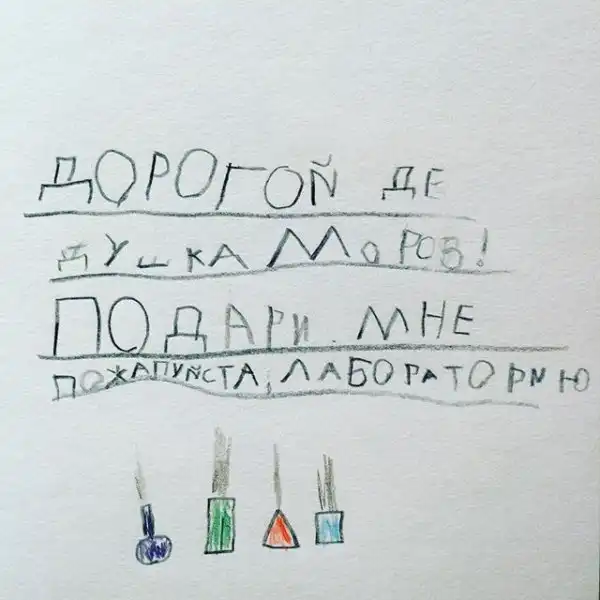 ДОРОГОЙ ДЕ
ДУШКА МОРОЗ!
ПОДАРИ МНЕ
ПОЖАПУЙСТА, ЛАБОРАТОРИЮ